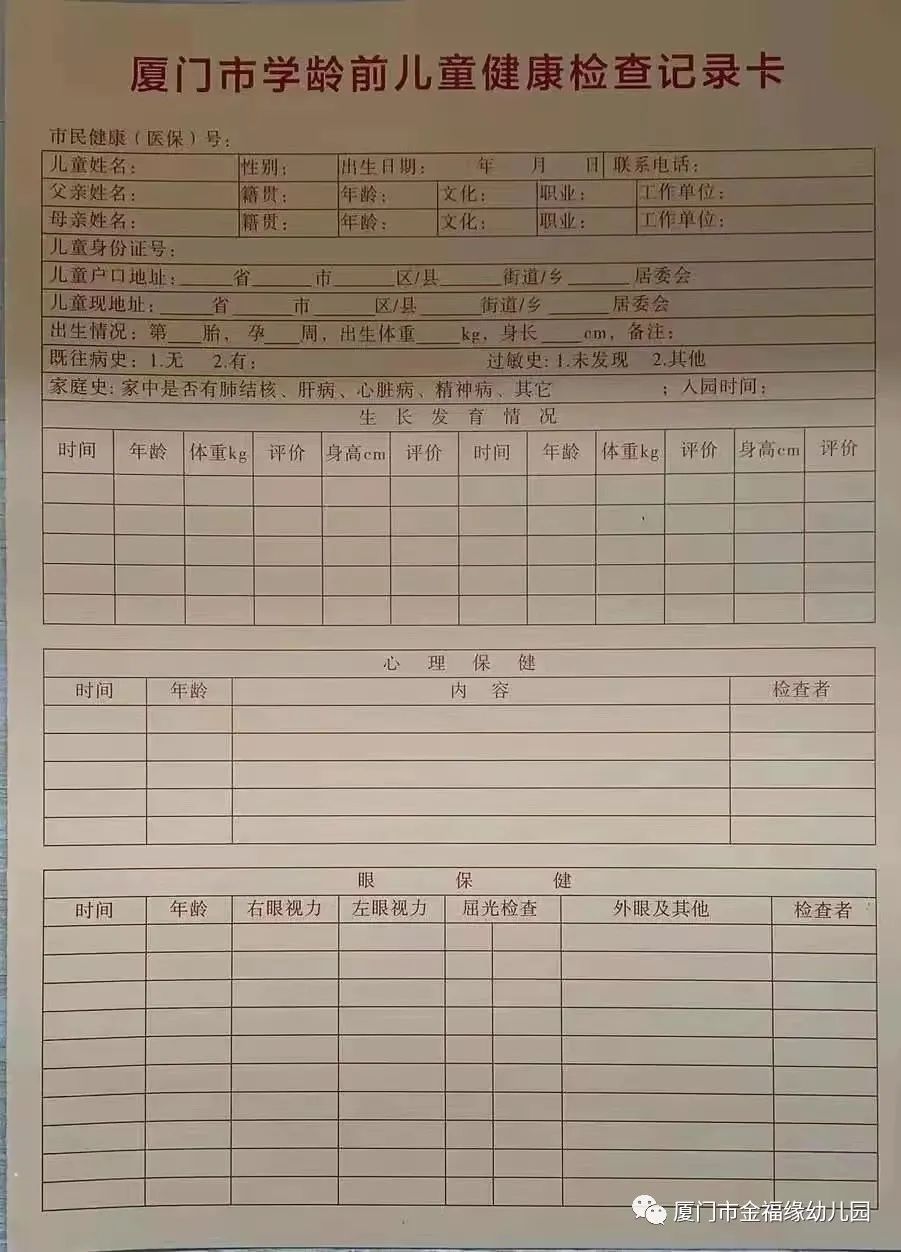 厦门市学龄前儿童健康检查记录卡
市民健康（医保）号：
儿童姓名： 性别： 出生日期： 年 月 日 联系电话：
父亲姓名： 籍贯： 年龄： 文化： 职业： 工作单位：
母亲姓名： 籍贯： 年龄： 文化： 职业： 工作单位：
儿童身份证号：
儿童户口地址：______省______市______区/县______街道/乡______居委会
儿童现地址：______省______市______区/县______街道/乡______居委会
出生情况：第___胎，孕___周，出生体重____kg，身长____cm，备注：
既往病史：1.无 2.有： 过敏史：1.未发现 2.其他
家庭史：家中是否有肺结核、肝病、心脏病、精神病、其它 ；入园时间：
生长发育情况
时间 年龄 体重kg 评价 身高cm 评价 时间 年龄 体重kg 评价 身高cm 评价
心理保健
时间 年龄 内容 检查者
眼保健
时间 年龄 右眼视力 左眼视力 屈光检查 外眼及其他 检查者
厦门市金福缘幼儿园